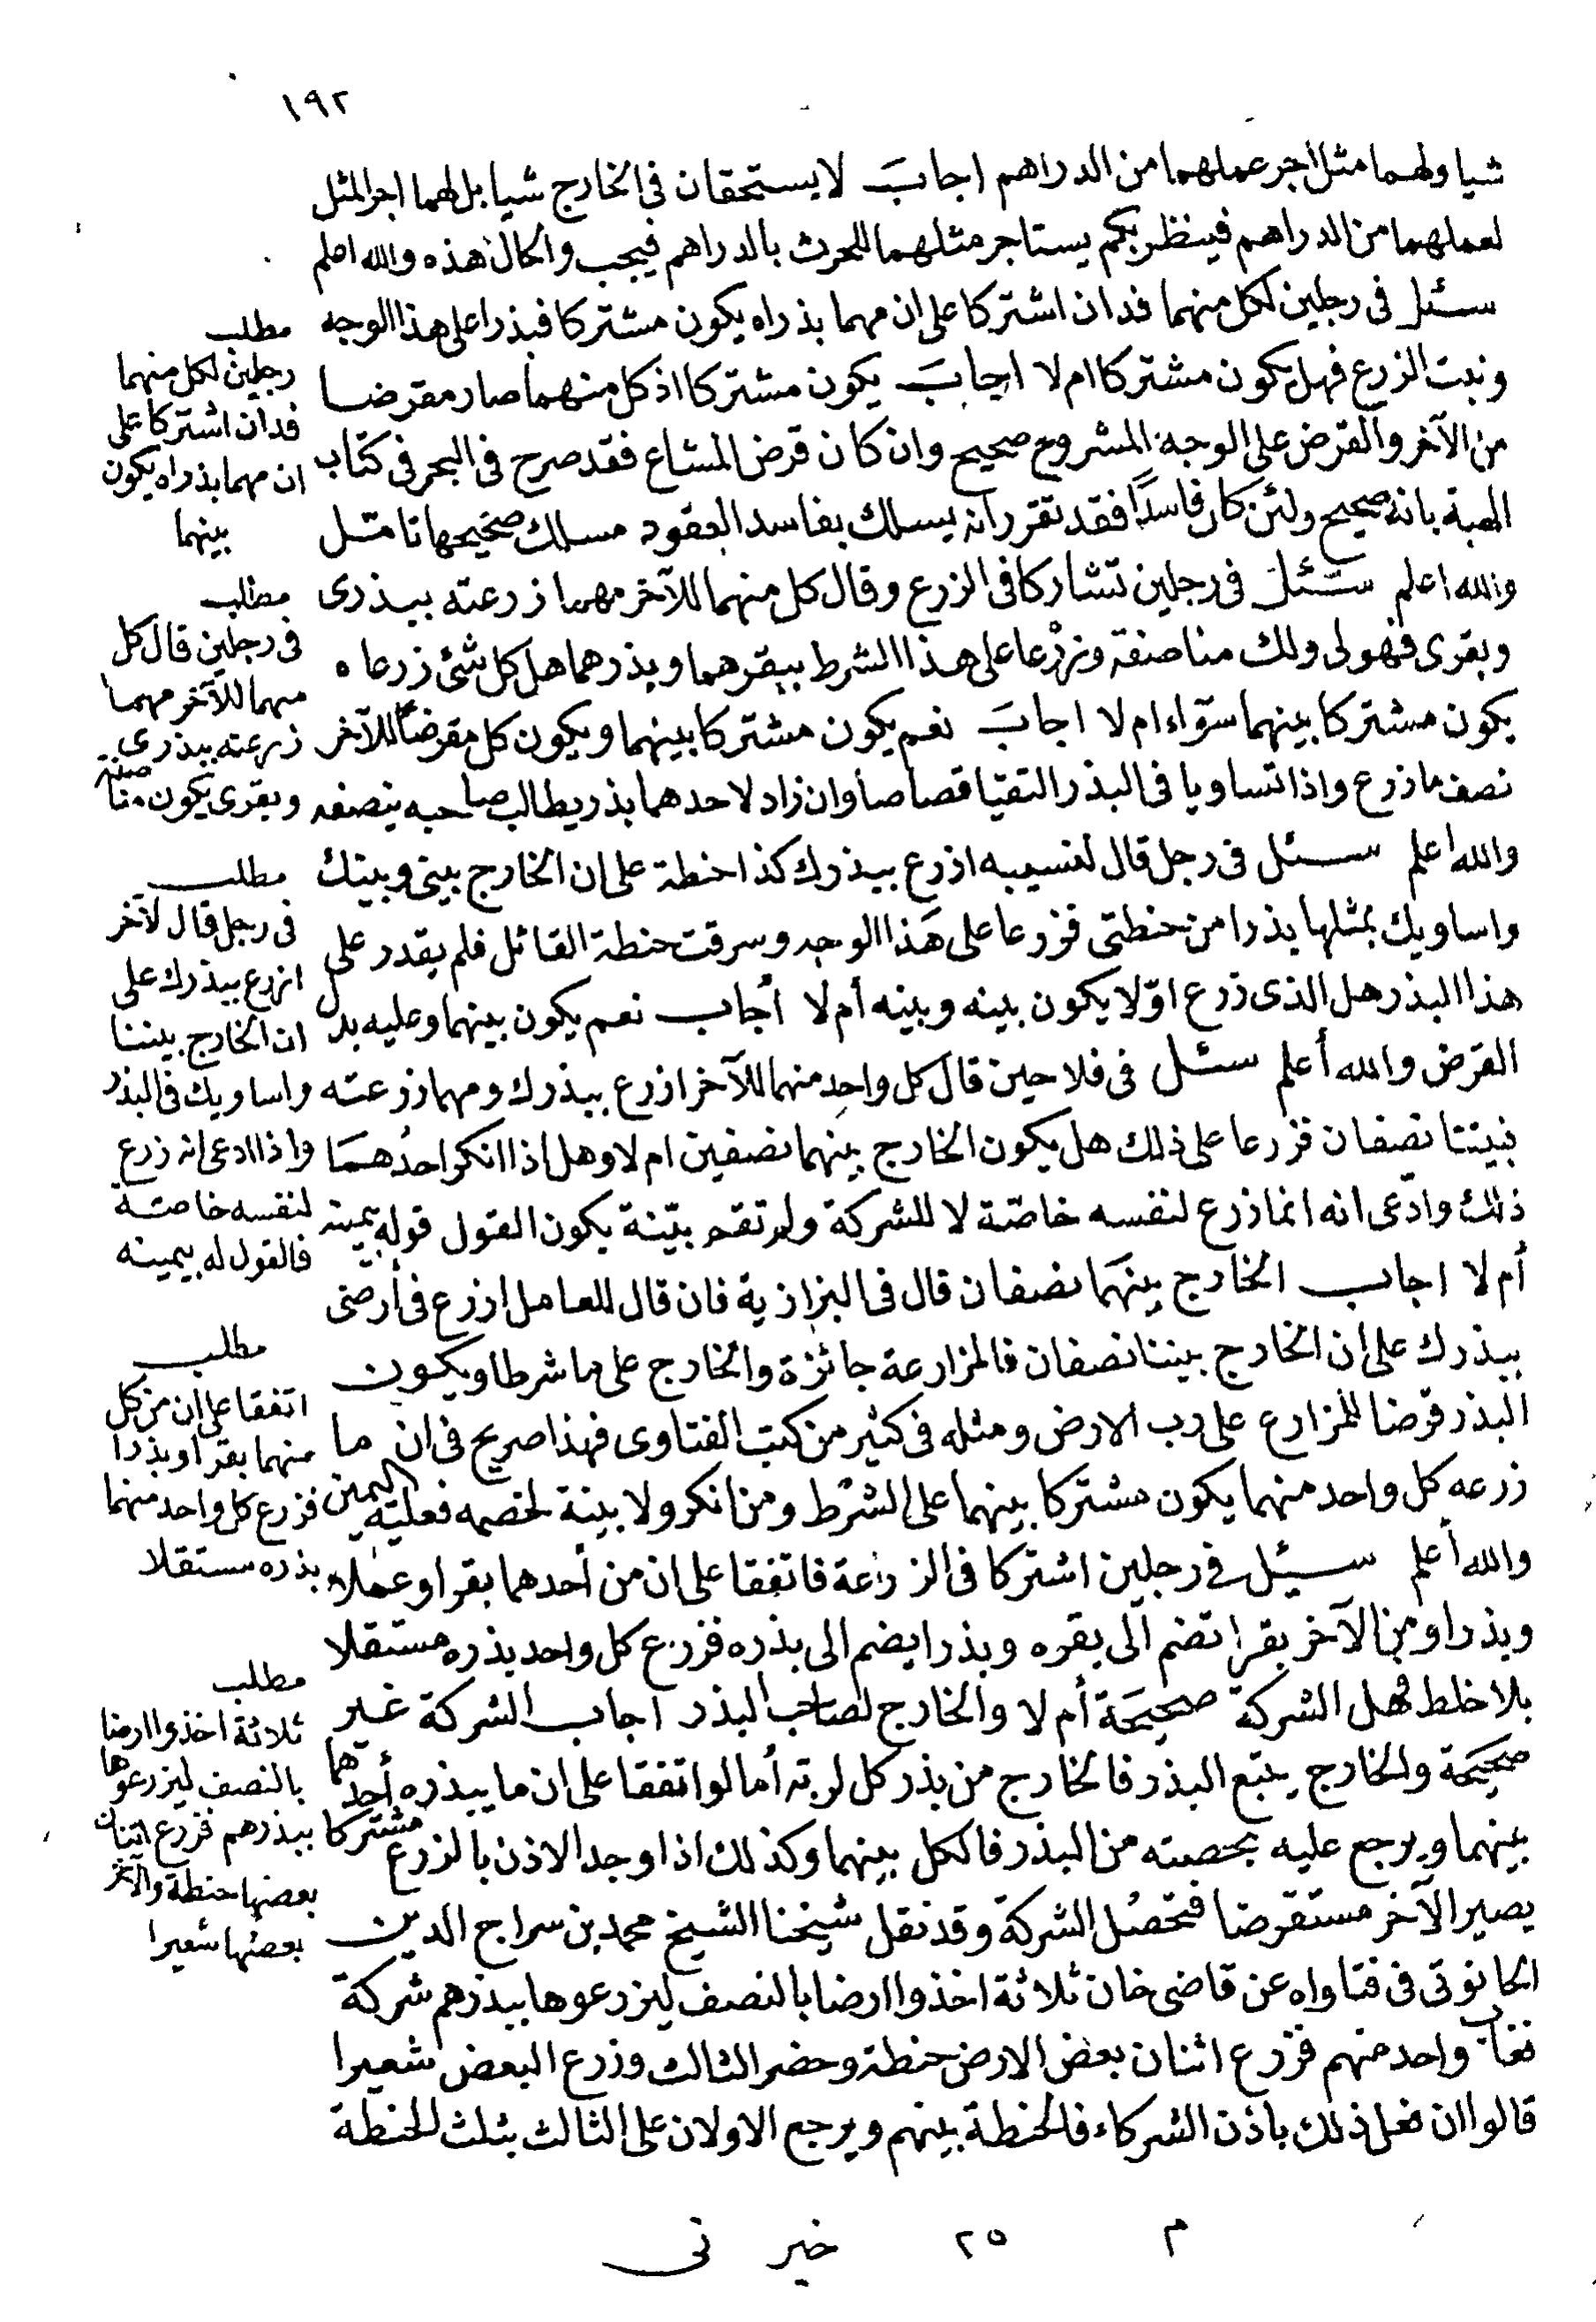 ١٩٢
شيا ولهما مثل اجر عملهما من الدراهم اجاب لا يستحقان فى الخارج شيا بل لهما اجر المثل
لعملهما من الدراهم فينظر بكم يستاجر مثلهما للحرث بالدراهم فيجب والحال هذه والله اعلم
سئل فى رجلين لكل منهما فدان اشتركا على ان مهما بذراه يكون مشتركا فبذرا على هذا الوجه
ونبت الزرع فهل يكون مشتركا ام لا اجاب يكون مشتركا اذ كل منهما صار مقرضا
من الآخر والقرض على الوجه المشروح صحيح وان كان قرض المشاع فقد صرح فى البحر فى كتاب
الهبة بانه صحيح ولئن كان فاسدًا فقد تقرر انه يسلك بفاسد العقود مسلك صحيحها تامل
والله اعلم سئل فى رجلين تشاركا فى الزرع وقال كل منهما للآخر مهما زرعته ببذرى
وبقرى فهو لى ولك مناصفة وزرعا على هذا الشرط ببقرهما وبذرهما هل كل شئ زرعاه
يكون مشتركا بينهما سوّاء ام لا اجاب نعم يكون مشتركا بينهما ويكون كل مقرضا للآخر
نصف ما زرع واذا تساويا فى البذر التقيا قصاصا وان زاد لاحدهما بذر يطالب صاحبه بنصفه
والله اعلم سئل فى رجل قال لنسيبه ازرع ببذرك كذا حنطة على ان الخارج بينى وبينك
واساويك بمثلها بذرا من حنطتى فزرعا على هذا الوجه وسرقت حنطة القائل فلم يقدر على
هذا البذر هل الذى زرع اوّلا يكون بينه وبينه أم لا أجاب نعم يكون بينهما وعليه بدل
القرض والله أعلم سئل فى فلاحين قال كل واحد منهما للآخر ازرع ببذرك ومهما زرعته
فبيننا نصفان فزرعا على ذلك هل يكون الخارج بينهما نصفين ام لا وهل اذا انكر احدهما
ذلك وادّعى انه انما زرع لنفسه خاصّة لا للشركة ولم تقم بيّنة يكون القول قوله بيمينه
أم لا اجاب الخارج بينهما نصفان قال فى البزازية فان قال للعامل ازرع فى أرضى
ببذرك على ان الخارج بيننا نصفان فالمزارعة جائزة والخارج على ما شرطا ويكون
البذر قرضا للمزارع على رب الارض ومثله فى كثير من كتب الفتاوى فهذا صريح فى ان ما
زرعه كل واحد منهما يكون مشتركا بينهما على الشرط ومن انكر ولا بينة لخصمه فعليه اليمين
والله أعلم سئل فى رجلين اشتركا فى الزراعة فاتفقا على ان من أحدهما بقرا وعملا
وبذرا ومن الآخر بقرا تضم الى بقره وبذرا يضم الى بذره فزرع كل واحد بذره مستقلا
بلا خلط فهل الشركة صحيحة أم لا والخارج لصاحب البذر اجاب الشركة غير
صحيحة والخارج يتبع البذر فالخارج من بذر كل لربه أما لو اتفقا على ان ما يبذره أحدهما مشتركا
بينهما ويرجع عليه بحصته من البذر فالكل بينهما وكذلك اذا وجد الاذن بالزرع
يصير الآخر مستقرضا فتحصل الشركة وقد نقل شيخنا الشيخ محمد بن سراج الدين
الحانوتى فى فتاواه عن قاضى خان ثلاثة اخذوا ارضا بالنصف ليزرعوها ببذرهم شركة
فغاب واحد منهم فزرع اثنان بعض الارض حنطة وحضر الثالث وزرع البعض شعيرا
قالوا ان فعل ذلك باذن الشركاء فالحنطة بينهم ويرجع الاولان على الثالث بثلث الحنطة
مطلب
رجلين لكل منهما
فدان اشتركا على
ان مهما بذراه يكون
بينهما
مطلب
فى رجلين قال كل
منهما للآخر مهما
زرعته ببذرى
وبقرى يكون مناصفة
مطلب
فى رجل قال لآخر
ازرع ببذرك على
ان الخارج بيننا
واساويك فى البذر
واذا ادعى انه زرع
لنفسه خاصة
فالقول له بيمينه
مطلب
اتفقا على ان من كل
منهما بقرا وبذرا
فزرع كل واحد منهما
بذره مستقلا
مطلب
ثلاثة اخذوا ارضا
بالنصف ليزرعوها
ببذرهم فزرع اثنان
بعضها حنطة والآخر
بعضها شعيرا
م ٢٥ خير نى